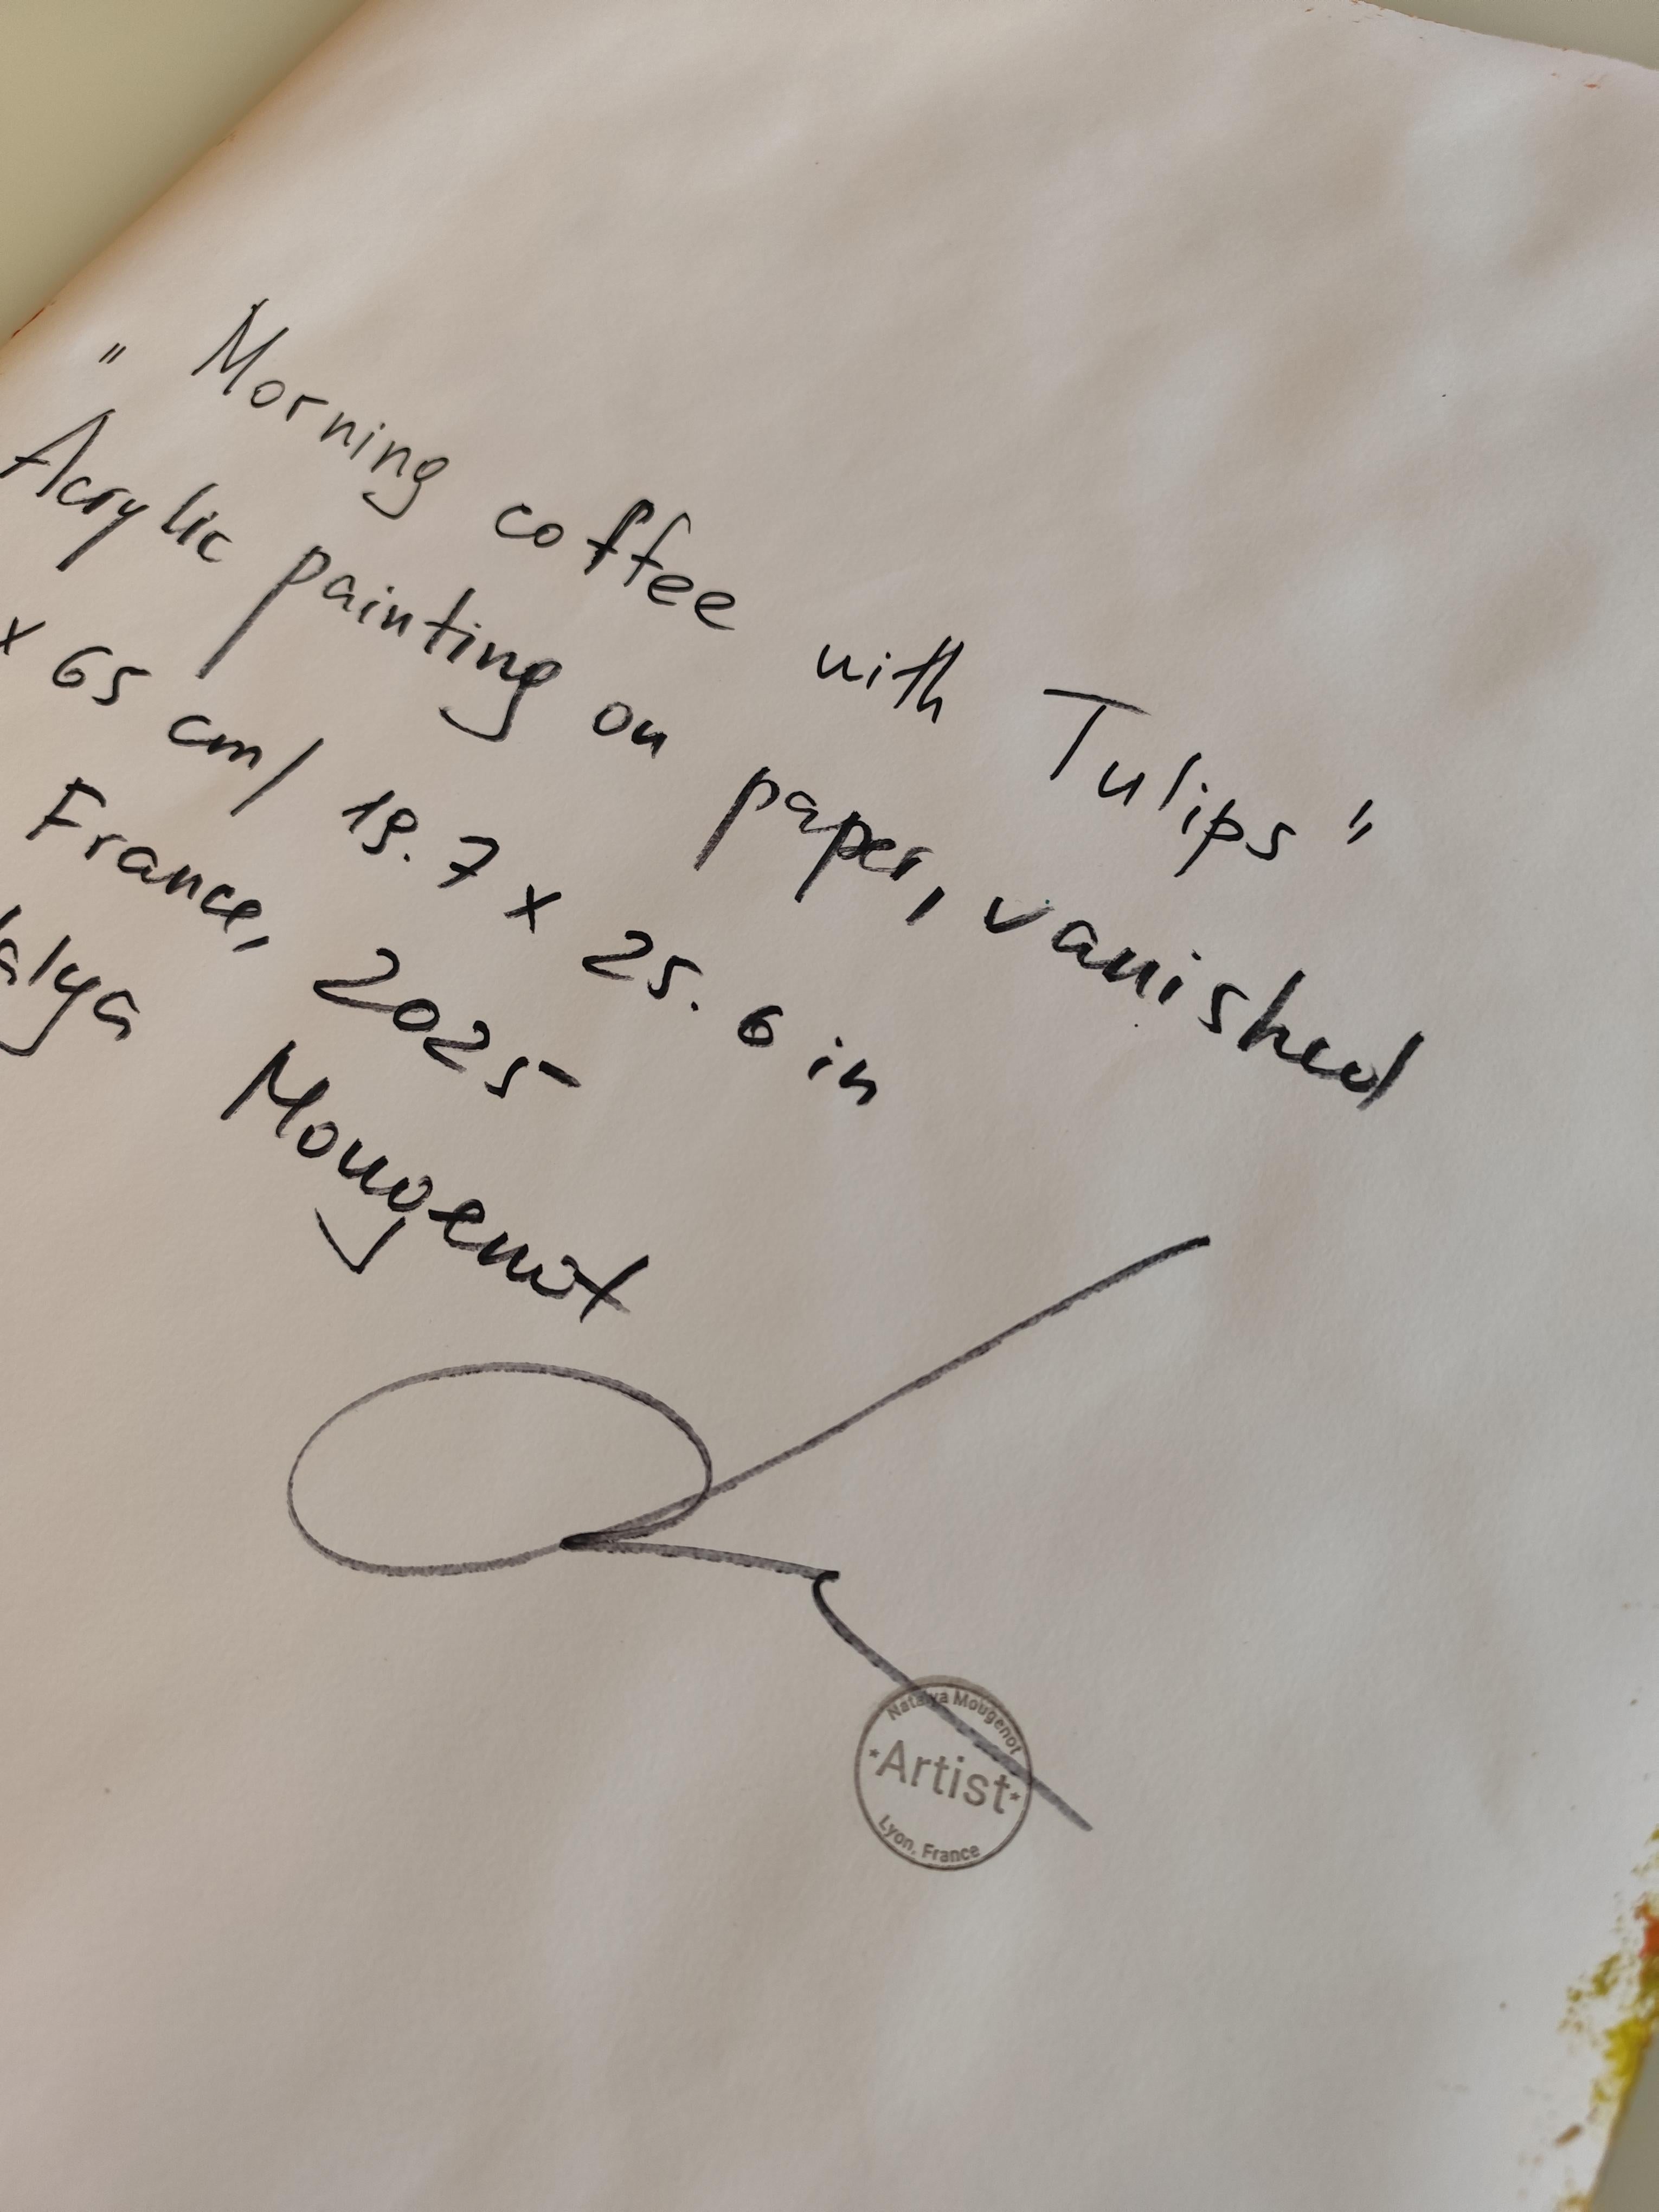 " Morning coffee with Tulips "
Acrylic painting on paper, vanished
x 65 cm/ 19.7 x 25.6 in
France, 2025
Mougenot
Natalya Mougenot
*Artist*
Lyon, France